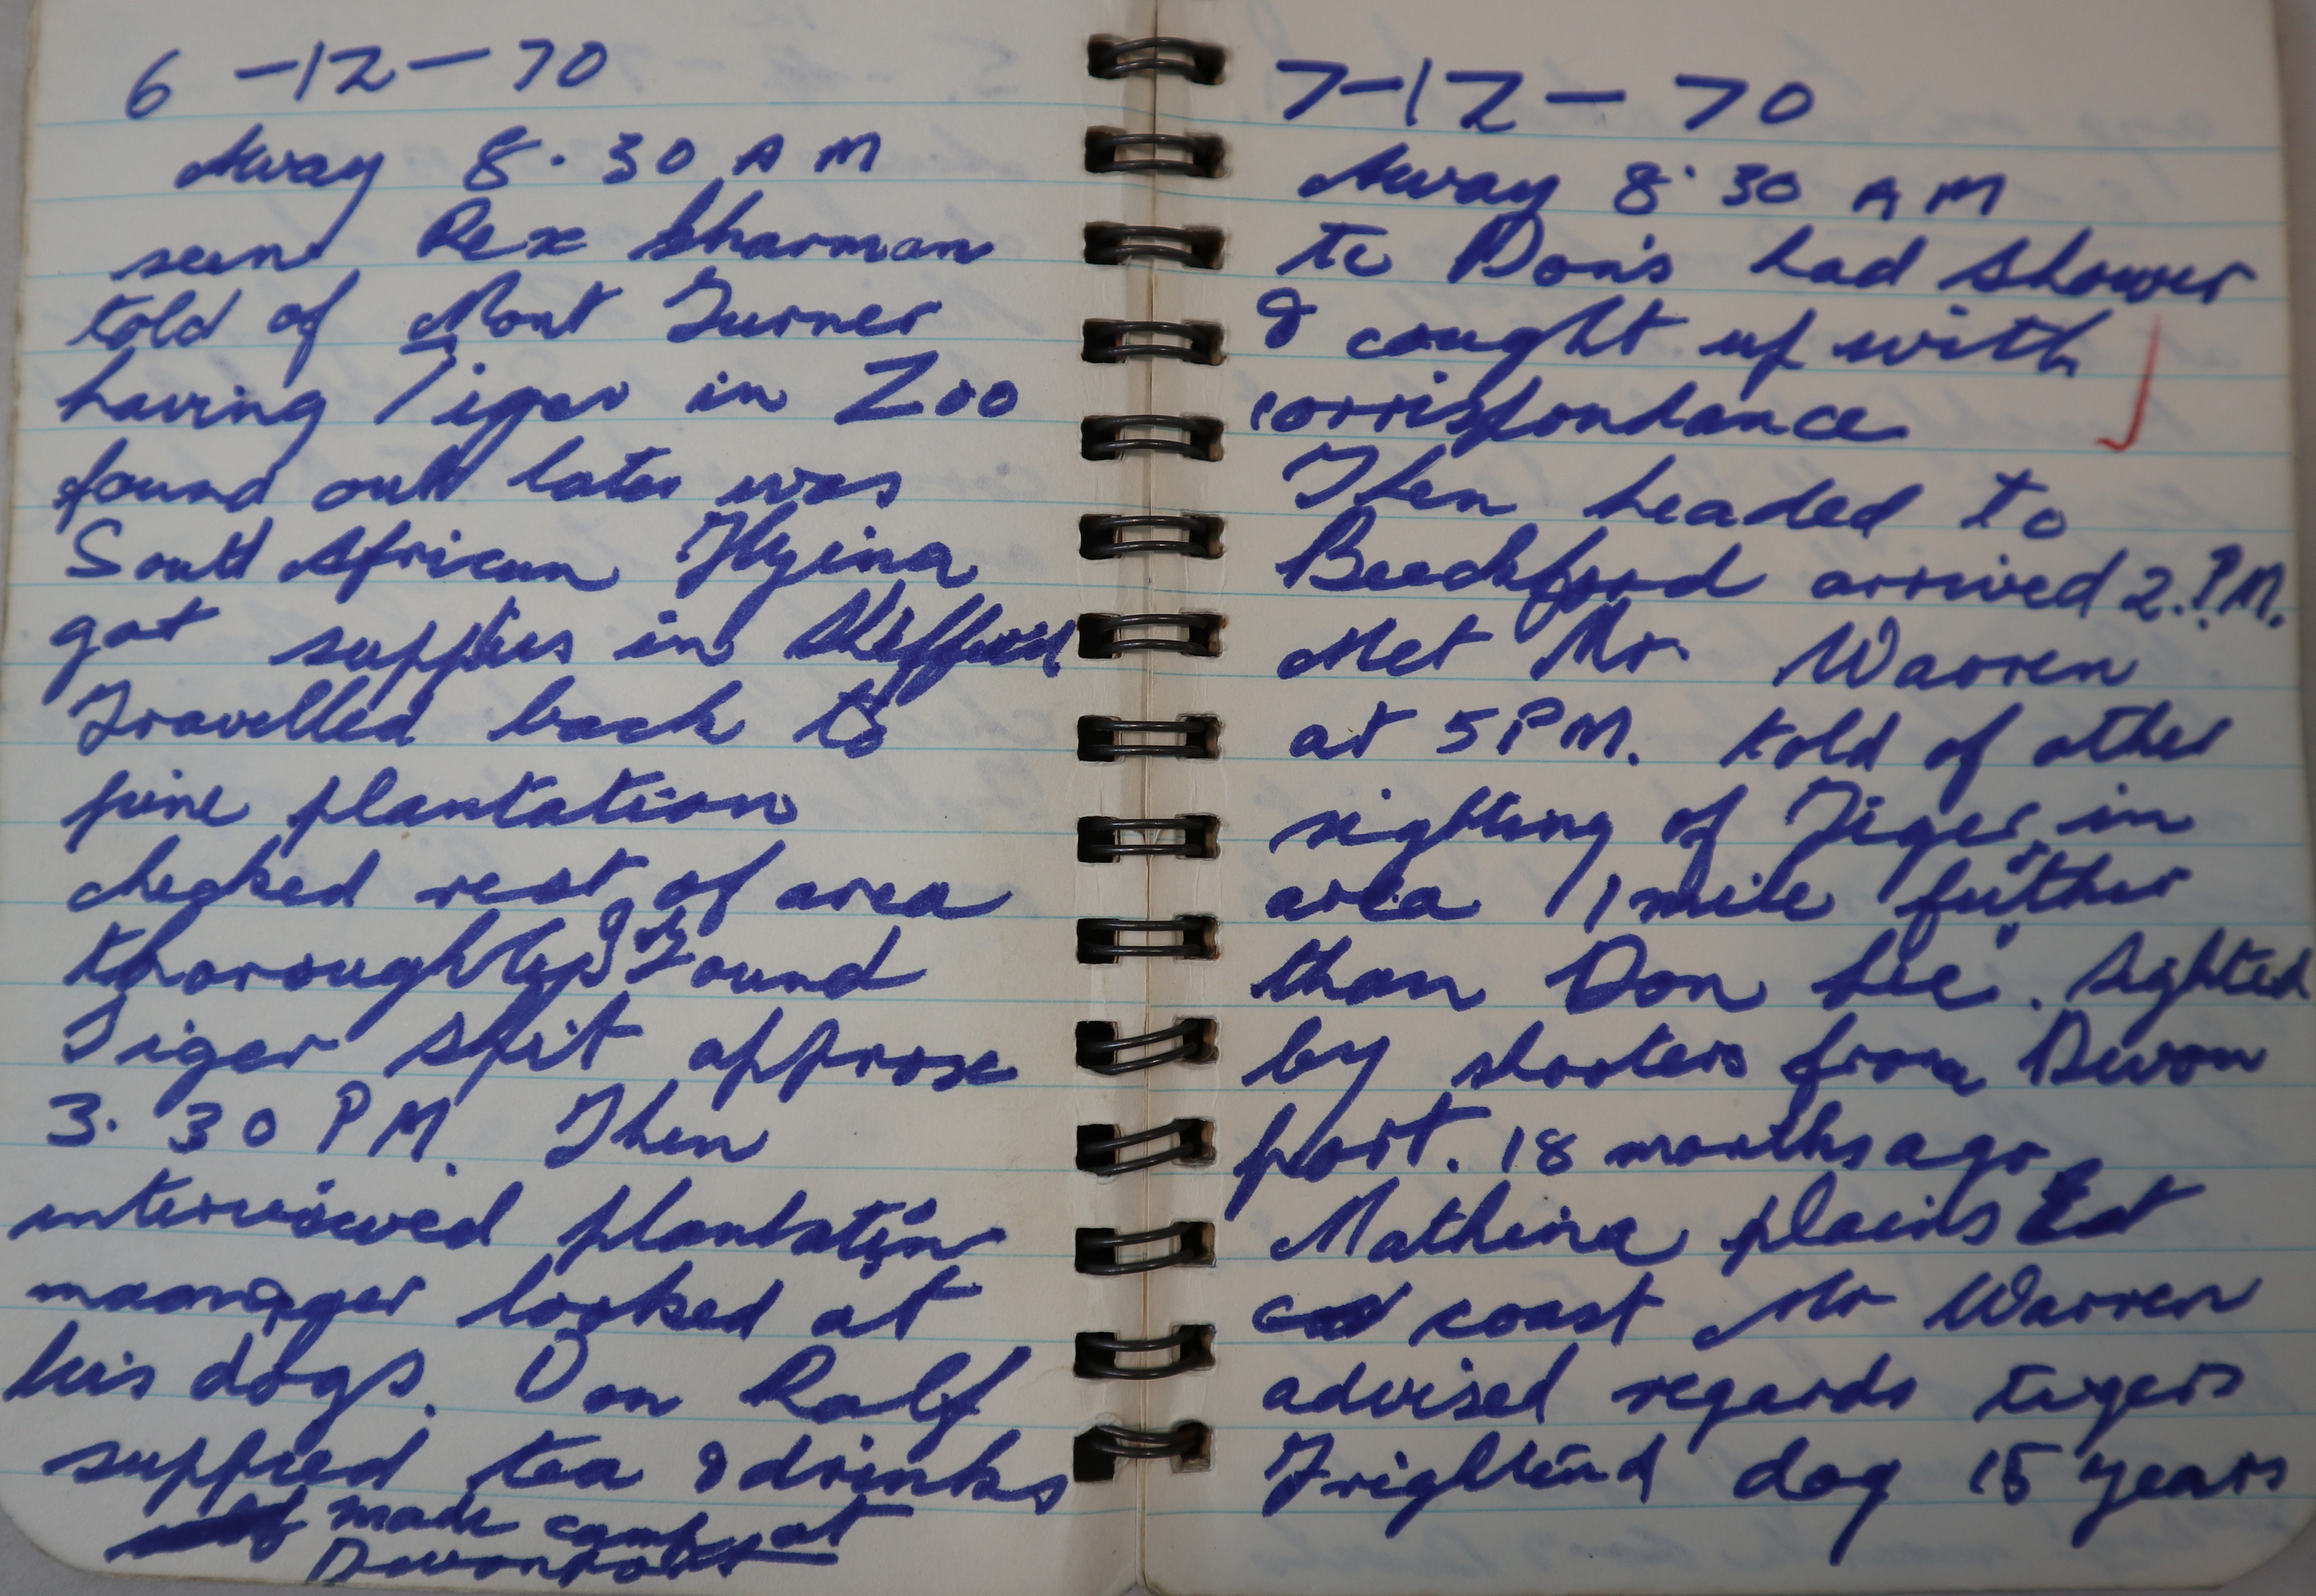 6 -12-70
Away 8.30 AM
seen Rex Sharman
told of Mont Turner
having Tiger in Zoo
found out later was
South African Hyina
got supplies in Sheffield
Travelled back to
pine plantation
checked rest of area
thoroughly & Found
Tiger spit approx
3.30 PM. Then
interviewed plantation
manager looked at
his dogs. Don Ralf
supplied tea & drinks
made camp at
Devonport
7-12-70
Away 8.30 AM
to Don's had shower
& cought up with
corrispondance
Then headed to
Beeckford arrived 2.PM.
Met Mr. Warren
at 5PM. told of other
sighting of Tiger in
area 1 mile futher
than Don Lee. Sighted
by shooters from Devon
port. 18 months ago
Mathina plains Est
coast Mr Warren
advised regards tigers
Frightend dog 15 years